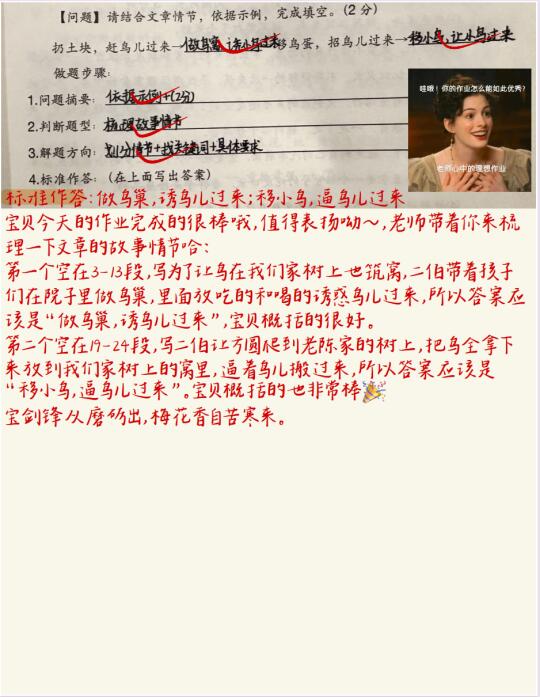 【问题】请结合文章情节，依据示例，完成填空。(2分)
扔土块，赶鸟儿过来→做鸟窝，诱小鸟过来 移鸟蛋，招鸟儿过来→移小鸟，让小鸟过来
做题步骤：
1.问题摘要：依据示例+(2分)
2.判断题型：梳理故事情节
3.解题方向：划分情节+找关键词+具体要求
4.标准作答：(在上面写出答案)
哇哦！你的作业怎么能如此优秀？
老师心中的理想作业
标准作答：做鸟巢，诱鸟儿过来；移小鸟，逼鸟儿过来
宝贝今天的作业完成的很棒哦，值得表扬呦～，老师带着你来梳
理一下文章的故事情节哈：
第一个空在3-13段，写为了让鸟在我们家树上也筑窝，二伯带着孩子
们在院子里做鸟巢，里面放吃的和喝的诱惑鸟儿过来，所以答案应
该是“做鸟巢，诱鸟儿过来”，宝贝概括的很好。
第二个空在19-24段，写二伯让方圆爬到老陈家的树上，把鸟全拿下
来放到我们家树上的窝里，逼着鸟儿搬过来，所以答案应该是
“移小鸟，逼鸟儿过来”。宝贝概括的也非常棒🎉
宝剑锋从磨砺出，梅花香自苦寒来。